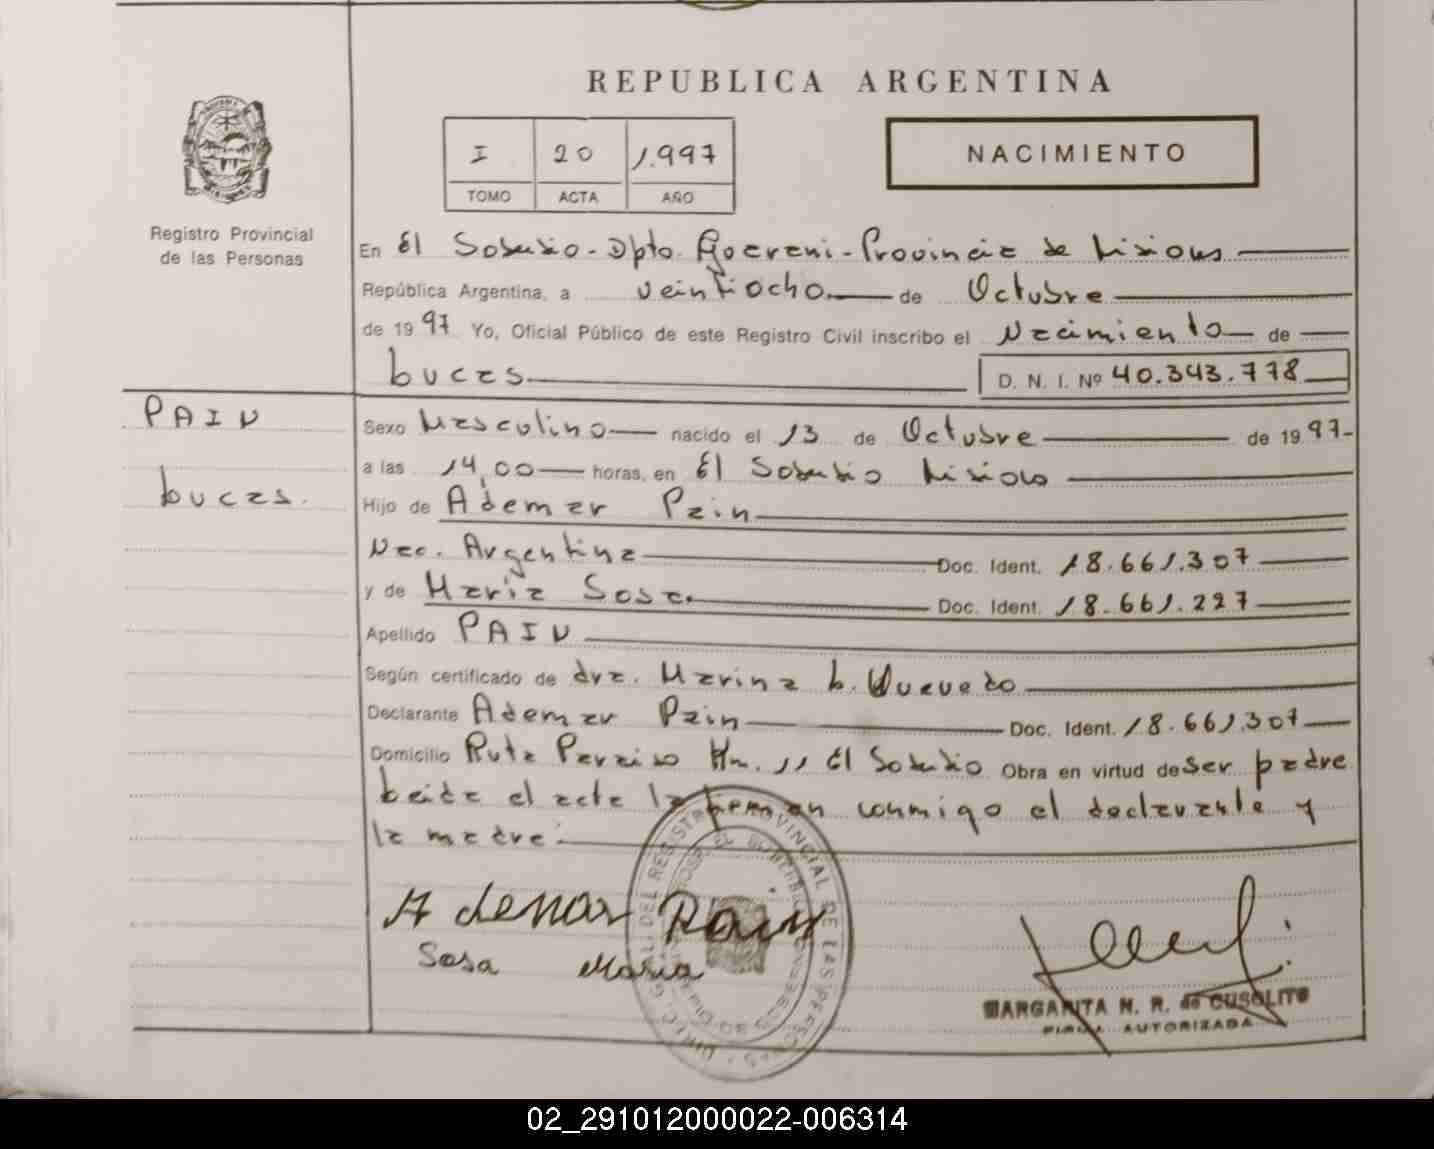 REPUBLICA ARGENTINA
I 20 1.997
TOMO ACTA AÑO
NACIMIENTO
Registro Provincial
de las Personas
En El Soberbio - Dpto. Guarani - Provincia de Misiones
República Argentina, a veintiocho de Octubre
de 1997 Yo, Oficial Público de este Registro Civil inscribo el Nacimiento de
Lucas D. N. I. Nº 40.343.778
PAIN
Lucas.
Sexo Masculino nacido el 13 de Octubre de 1997-
a las 14,00 horas, en El Soberbio Misiones
Hijo de Ademar Pain
Nac. Argentina Doc. Ident. 18.661.307
y de Maria Sosa. Doc. Ident. 18.661.297
Apellido PAIN
Según certificado de dra. Marina L. Quevedo
Declarante Ademar Pain Doc. Ident. 18.661.307
Domicilio Ruta Paraiso Km. 11 El Soberbio Obra en virtud de ser padre
Leida el acta la firman conmigo el declarante y
la madre.
Ademar Pain
Sosa Maria
MARGARITA N. R. de CUSOLITO
FIRMA AUTORIZADA
02_291012000022-006314